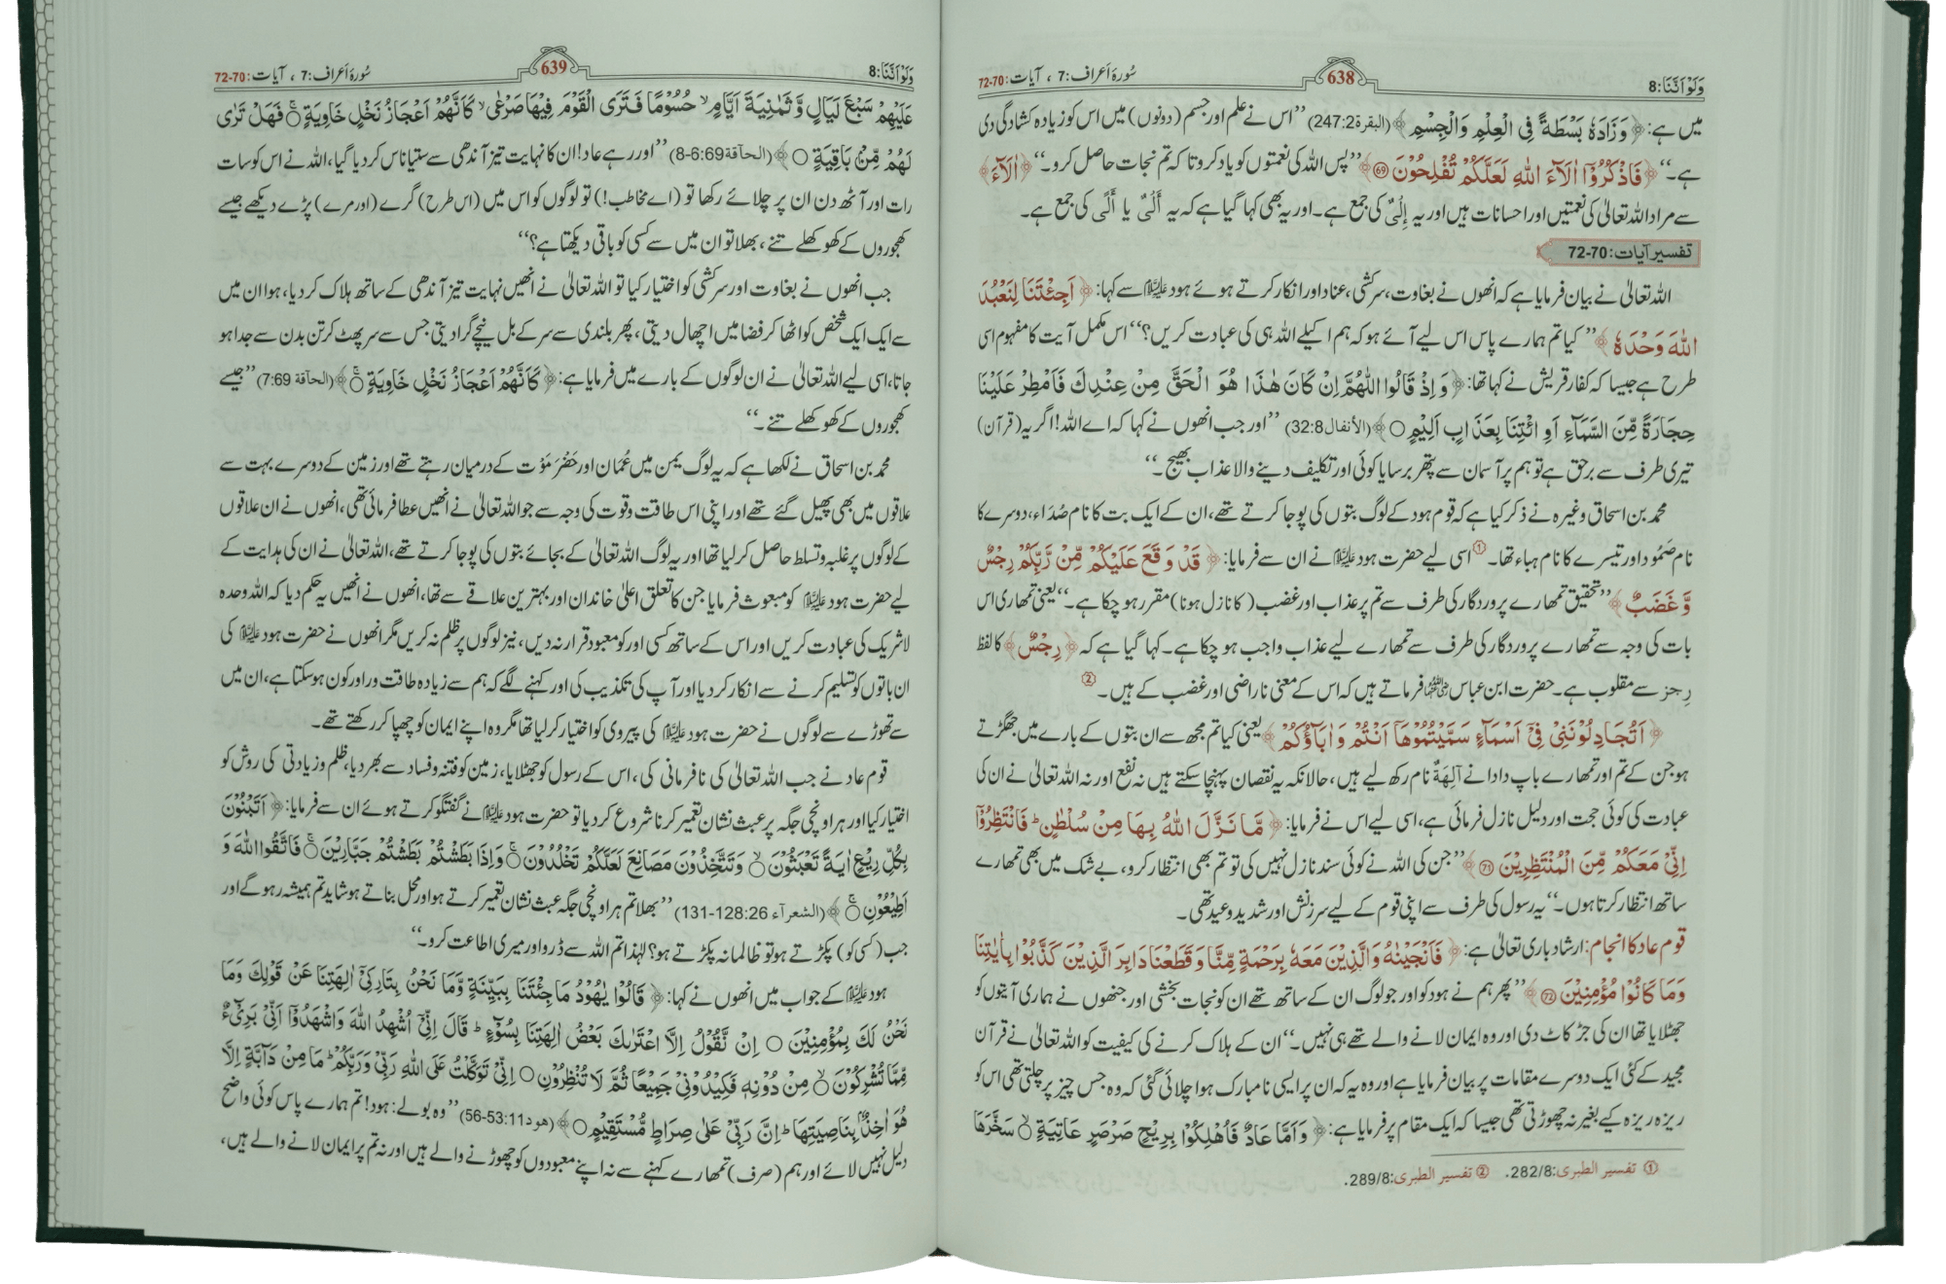 وَلَوْ اَنَّنَا:8 638 سُورۂ اَعراف:7 ، آیات:70-72
میں ہے:﴿ وَزَادَهٗ بَسْطَةً فِی الْعِلْمِ وَالْجِسْمِ ﴾(البقرة2:247) ’’اس نے علم اور جسم (دونوں) میں اس کو زیادہ کشادگی دی
ہے۔‘‘ ﴿ فَاذْكُرُوْۤا اٰلَآءَ اللّٰهِ لَعَلَّكُمْ تُفْلِحُوْنَ ۶۹﴾’’پس اللہ کی نعمتوں کو یاد کرو تاکہ تم نجات حاصل کرو۔‘‘ ﴿ اٰلَآءَ ﴾
سے مراد اللہ تعالیٰ کی نعمتیں اور احسانات ہیں اور یہ إِلًى کی جمع ہے۔ اور یہ بھی کہا گیا ہے کہ یہ أَلًى یا أَلًّى کی جمع ہے۔
تفسیر آیات:70-72
اللہ تعالیٰ نے بیان فرمایا ہے کہ انھوں نے بغاوت، سرکشی، عناد اور انکار کرتے ہوئے ہود علیہ السلام سے کہا: ﴿ اَجِئْتَنَا لِنَعْبُدَ
اللّٰهَ وَحْدَهٗ ﴾ ’’کیا تم ہمارے پاس اس لیے آئے ہو کہ ہم اکیلے اللہ ہی کی عبادت کریں؟‘‘ اس مکمل آیت کا مفہوم اسی
طرح ہے جیسا کہ کفار قریش نے کہا تھا: ﴿ وَاِذْ قَالُوا اللّٰهُمَّ اِنْ كَانَ هٰذَا هُوَ الْحَقَّ مِنْ عِنْدِكَ فَاَمْطِرْ عَلَيْنَا
حِجَارَةً مِّنَ السَّمَآءِ اَوِ ائْتِنَا بِعَذَابٍ اَلِيْمٍ ○ ﴾(الأنفال8:32) ’’اور جب انھوں نے کہا کہ اے اللہ! اگر یہ (قرآن)
تیری طرف سے برحق ہے تو ہم پر آسمان سے پتھر برسا یا کوئی اور تکلیف دینے والا عذاب بھیج ۔‘‘
محمد بن اسحاق وغیرہ نے ذکر کیا ہے کہ قوم ہود کے لوگ بتوں کی پوجا کرتے تھے، ان کے ایک بت کا نام صُدَاء، دوسرے کا
نام صَمُود اور تیسرے کا نام ہباء تھا۔① اسی لیے حضرت ہود علیہ السلام نے ان سے فرمایا: ﴿ قَدْ وَقَعَ عَلَيْكُمْ مِّنْ رَّبِّكُمْ رِجْسٌ
وَّغَضَبٌ ﴾ ’’تحقیق تمھارے پروردگار کی طرف سے تم پر عذاب اور غضب (کا نازل ہونا) مقرر ہو چکا ہے۔‘‘ یعنی تمھاری اس
بات کی وجہ سے تمھارے پروردگار کی طرف سے تمھارے لیے عذاب واجب ہو چکا ہے۔ کہا گیا ہے کہ ﴿ رِجْسٌ ﴾ کا لفظ
رِجز سے مقلوب ہے۔ حضرت ابن عباس رضی اللہ عنہما فرماتے ہیں کہ اس کے معنی ناراضی اور غضب کے ہیں۔②
﴿ اَتُجَادِلُوْنَنِیْ فِیْۤ اَسْمَآءٍ سَمَّيْتُمُوْهَاۤ اَنْتُمْ وَاٰبَآؤُكُمْ ﴾ یعنی کیا تم مجھ سے ان بتوں کے بارے میں جھگڑتے
ہو جن کے تم اور تمھارے باپ دادا نے آلِهَةٌ نام رکھ لیے ہیں، حالانکہ یہ نقصان پہنچا سکتے ہیں نہ نفع اور نہ اللہ تعالیٰ نے ان کی
عبادت کی کوئی حجت اور دلیل نازل فرمائی ہے، اسی لیے اس نے فرمایا: ﴿ مَّا نَزَّلَ اللّٰهُ بِهَا مِنْ سُلْطٰنٍ ؕ فَانْتَظِرُوْۤا
اِنِّیْ مَعَكُمْ مِّنَ الْمُنْتَظِرِيْنَ ۷۱﴾ ’’جن کی اللہ نے کوئی سند نازل نہیں کی تو تم بھی انتظار کرو، بے شک میں بھی تمھارے
ساتھ انتظار کرتا ہوں۔‘‘ یہ رسول کی طرف سے اپنی قوم کے لیے سرزنش اور شدید وعید تھی۔
قوم عاد کا انجام: ارشاد باری تعالیٰ ہے: ﴿ فَاَنْجَيْنٰهُ وَالَّذِيْنَ مَعَهٗ بِرَحْمَةٍ مِّنَّا وَقَطَعْنَا دَابِرَ الَّذِيْنَ كَذَّبُوْا بِاٰيٰتِنَا
وَمَا كَانُوْا مُؤْمِنِيْنَ ۷۲﴾ ’’پھر ہم نے ہود کو اور جو لوگ ان کے ساتھ تھے ان کو نجات بخشی اور جنھوں نے ہماری آیتوں کو
جھٹلایا تھا ان کی جڑ کاٹ دی اور وہ ایمان لانے والے تھے ہی نہیں۔‘‘ ان کے ہلاک کرنے کی کیفیت کو اللہ تعالیٰ نے قرآن
مجید کے کئی ایک دوسرے مقامات پر بیان فرمایا ہے اور وہ یہ کہ ان پر ایسی نامبارک ہوا چلائی گئی کہ وہ جس چیز پر چلتی تھی اس کو
ریزہ ریزہ کیے بغیر نہ چھوڑتی تھی جیسا کہ ایک مقام پر فرمایا ہے: ﴿ وَاَمَّا عَادٌ فَاُهْلِكُوْا بِرِيْحٍ صَرْصَرٍ عَاتِيَةٍ ○ۙ سَخَّرَهَا
① تفسیر الطبری:282/8. ② تفسیر الطبری:289/8.
وَلَوْ اَنَّنَا:8 639 سُورۂ اَعراف:7 ، آیات:70-72
عَلَيْهِمْ سَبْعَ لَيَالٍ وَّثَمٰنِيَةَ اَيَّامٍ ۙ حُسُوْمًا فَتَرَی الْقَوْمَ فِيْهَا صَرْعٰی ۙ كَاَنَّهُمْ اَعْجَازُ نَخْلٍ خَاوِيَةٍ ○ۚ فَهَلْ تَرٰی
لَهُمْ مِّنْۢ بَاقِيَةٍ ○ ﴾(الحآقة69:6-8) ’’اور رہے عاد! ان کا نہایت تیز آندھی سے ستیاناس کر دیا گیا، اللہ نے اس کو سات
رات اور آٹھ دن ان پر چلائے رکھا تو (اے مخاطب!) تو لوگوں کو اس میں (اس طرح) گرے (اور مرے) پڑے دیکھے جیسے
کھجوروں کے کھوکھلے تنے، بھلا تو ان میں سے کسی کو باقی دیکھتا ہے؟‘‘
جب انھوں نے بغاوت اور سرکشی کو اختیار کیا تو اللہ تعالیٰ نے انھیں نہایت تیز آندھی کے ساتھ ہلاک کر دیا، ہوا ان میں
سے ایک ایک شخص کو اٹھا کر فضا میں اچھال دیتی، پھر بلندی سے سر کے بل نیچے گرا دیتی جس سے سر پھٹ کر تن بدن سے جدا ہو
جاتا، اسی لیے اللہ تعالیٰ نے ان لوگوں کے بارے میں فرمایا ہے: ﴿ كَاَنَّهُمْ اَعْجَازُ نَخْلٍ خَاوِيَةٍ ○ۚ ﴾(الحآقة 69:7) ’’جیسے
کھجوروں کے کھوکھلے تنے۔‘‘
محمد بن اسحاق نے لکھا ہے کہ یہ لوگ یمن میں عُمَان اور حَضْرَمَوْت کے درمیان رہتے تھے اور زمین کے دوسرے بہت سے
علاقوں میں بھی پھیل گئے تھے اور اپنی اس طاقت و قوت کی وجہ سے جو اللہ تعالیٰ نے انھیں عطا فرمائی تھی، انھوں نے ان علاقوں
کے لوگوں پر غلبہ و تسلط حاصل کر لیا تھا اور یہ لوگ اللہ تعالیٰ کے بجائے بتوں کی پوجا کرتے تھے، اللہ تعالیٰ نے ان کی ہدایت کے
لیے حضرت ہود علیہ السلام کو مبعوث فرمایا جن کا تعلق اعلیٰ خاندان اور بہترین علاقے سے تھا، انھوں نے انھیں یہ حکم دیا کہ اللہ وحدہ
لاشریک کی عبادت کریں اور اس کے ساتھ کسی اور کو معبود قرار نہ دیں، نیز لوگوں پر ظلم نہ کریں مگر انھوں نے حضرت ہود علیہ السلام کی
ان باتوں کو تسلیم کرنے سے انکار کر دیا اور آپ کی تکذیب کی اور کہنے لگے کہ ہم سے زیادہ طاقت ور اور کون ہو سکتا ہے، ان میں
سے تھوڑے سے لوگوں نے حضرت ہود علیہ السلام کی پیروی کو اختیار کر لیا تھا مگر وہ اپنے ایمان کو چھپا کر رکھتے تھے۔
قوم عاد نے جب اللہ تعالیٰ کی نافرمانی کی، اس کے رسول کو جھٹلایا، زمین کو فتنہ و فساد سے بھر دیا، ظلم و زیادتی کی روش کو
اختیار کیا اور ہر اونچی جگہ پر عبث نشان تعمیر کرنا شروع کر دیا تو حضرت ہود علیہ السلام نے گفتگو کرتے ہوئے ان سے فرمایا: ﴿ اَتَبْنُوْنَ
بِكُلِّ رِيْعٍ اٰيَةً تَعْبَثُوْنَ ○ۙ وَتَتَّخِذُوْنَ مَصَانِعَ لَعَلَّكُمْ تَخْلُدُوْنَ ○ۚ وَاِذَا بَطَشْتُمْ بَطَشْتُمْ جَبَّارِيْنَ ○ۚ فَاتَّقُوا اللّٰهَ وَ
اَطِيْعُوْنِ ○ۚ ﴾(الشعرآء 26:128-131) ’’بھلا تم ہر اونچی جگہ عبث نشان تعمیر کرتے ہو اور محل بناتے ہو شاید تم ہمیشہ رہو گے اور
جب (کسی کو) پکڑتے ہو تو ظالمانہ پکڑتے ہو؟ لہٰذا تم اللہ سے ڈرو اور میری اطاعت کرو۔‘‘
ہود علیہ السلام کے جواب میں انھوں نے کہا: ﴿ قَالُوْا يٰهُوْدُ مَا جِئْتَنَا بِبَيِّنَةٍ وَّمَا نَحْنُ بِتَارِكِیْۤ اٰلِهَتِنَا عَنْ قَوْلِكَ وَمَا
نَحْنُ لَكَ بِمُؤْمِنِيْنَ ○ اِنْ نَّقُوْلُ اِلَّا اعْتَرٰىكَ بَعْضُ اٰلِهَتِنَا بِسُوْٓءٍ ؕ قَالَ اِنِّیْۤ اُشْهِدُ اللّٰهَ وَاشْهَدُوْۤا اَنِّیْ بَرِیْٓءٌ
مِّمَّا تُشْرِكُوْنَ ○ۙ مِنْ دُوْنِهٖ فَكِيْدُوْنِیْ جَمِيْعًا ثُمَّ لَا تُنْظِرُوْنِ ○ اِنِّیْ تَوَكَّلْتُ عَلَی اللّٰهِ رَبِّیْ وَرَبِّكُمْ ؕ مَا مِنْ دَآبَّةٍ اِلَّا
هُوَ اٰخِذٌۢ بِنَاصِيَتِهَا ؕ اِنَّ رَبِّیْ عَلٰی صِرَاطٍ مُّسْتَقِيْمٍ ○ ﴾(هود11:53-56) ’’وہ بولے: ہود! تم ہمارے پاس کوئی واضح
دلیل نہیں لائے اور ہم (صرف) تمھارے کہنے سے نہ اپنے معبودوں کو چھوڑنے والے ہیں اور نہ تم پر ایمان لانے والے ہیں،